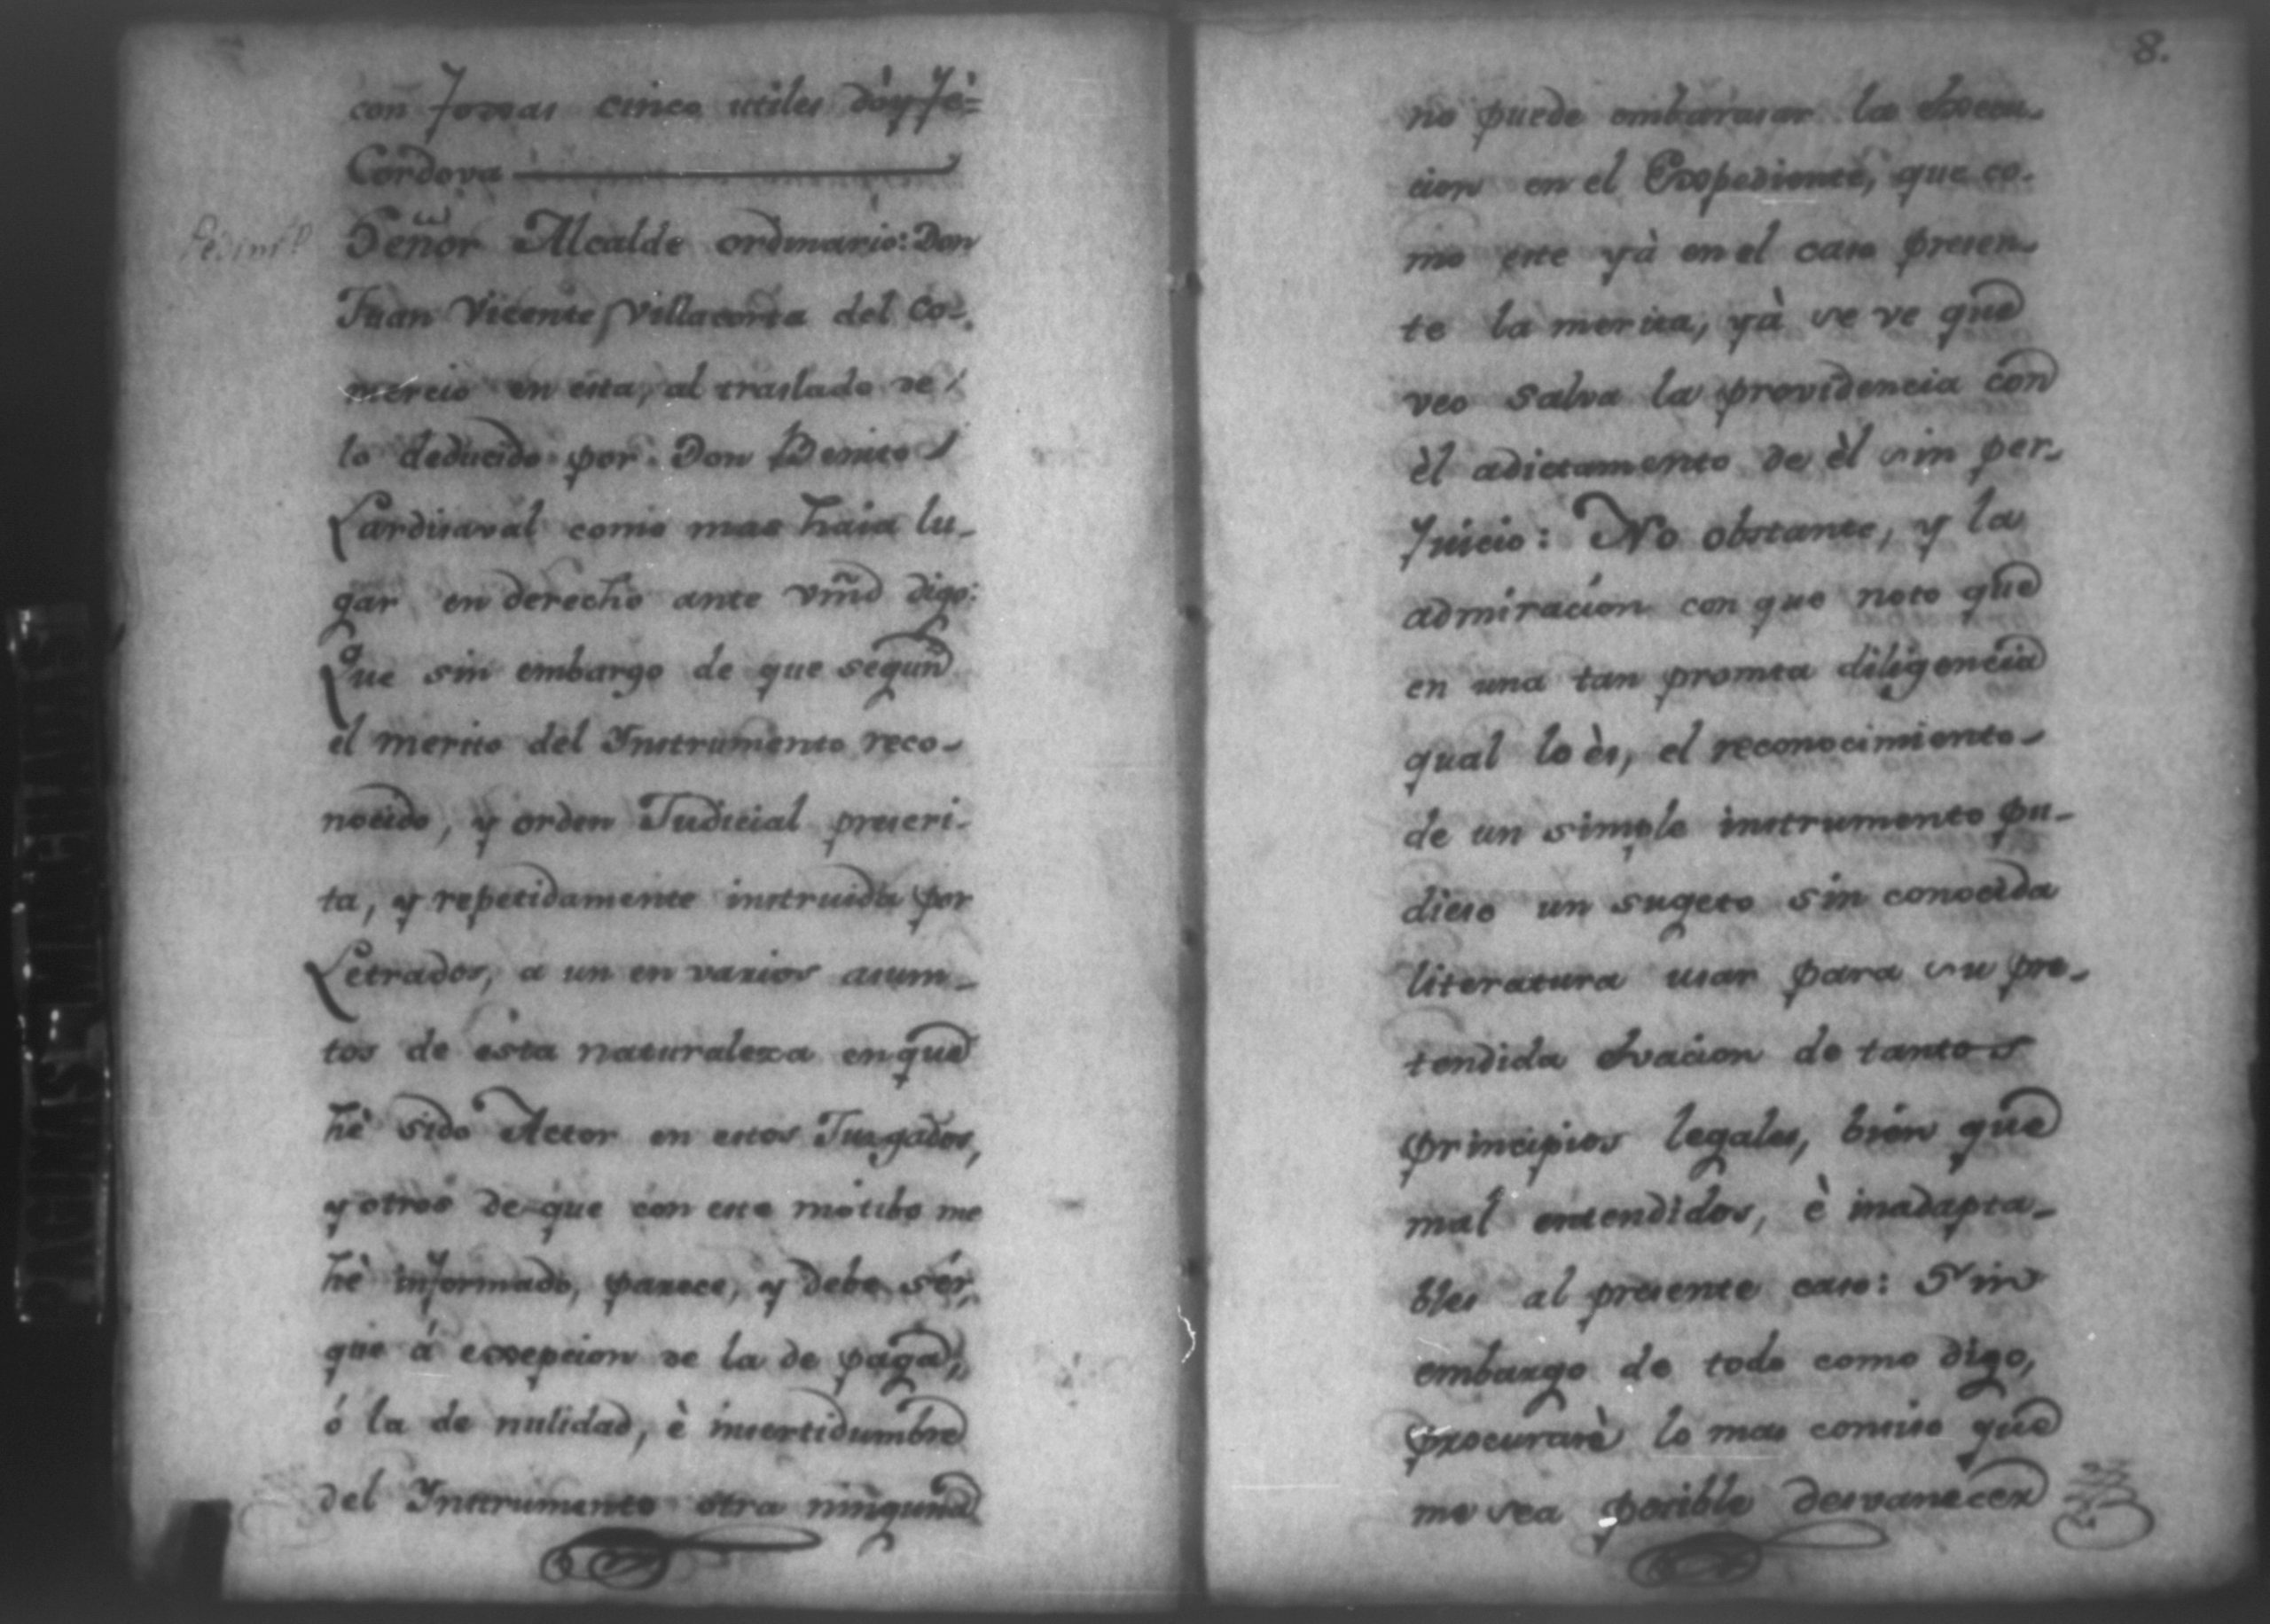 con Foxas cinco utiles dóy fè=
Cordova
Pedimto
Señor Alcalde ordinario: Don
Juan Vicente Villacorta del Co-
mercio en esta, al traslado de
lo deducido por Don Benito
Lardisaval como mas haia lu-
gar en derecho ante Vmd digo:
Que sin embargo de que segun
el merito del Instrumento reco-
nocido, y orden Judicial prescri-
ta, y repetidamente instruida por
Letrados, a un en varios asum-
tos de esta naturaleza en que
hè sido Actor en estos Juzgados,
y otros de que con este mótibo me
hè informado, parece, y debe sér,
que á excepcion de la de paga,
ó la de nulidad, è incertidumbre
del Instrumento otra ninguna
8.
no puede embarasar la Execu-
cion en el Expediente, que co-
mo este yà en el caso presen-
te la merita, yà se ve que
veo salva la providencia con
èl adictamento de èl sin per-
Juicio: No obstante, y la
admiracion con que noto que
en una tan promta diligencia
qual lo ès, el reconocimiento
de un simple instrumento pu-
diese un sugeto sin conocida
literatura usar para su pre-
tendida Evacion de tantos
principios legales, bien que
mal entendidos, è inadapta-
bles al presente caso: Sin
embargo de todo como digo,
procurarè lo mas conciso que
me sea pocible desvanecer